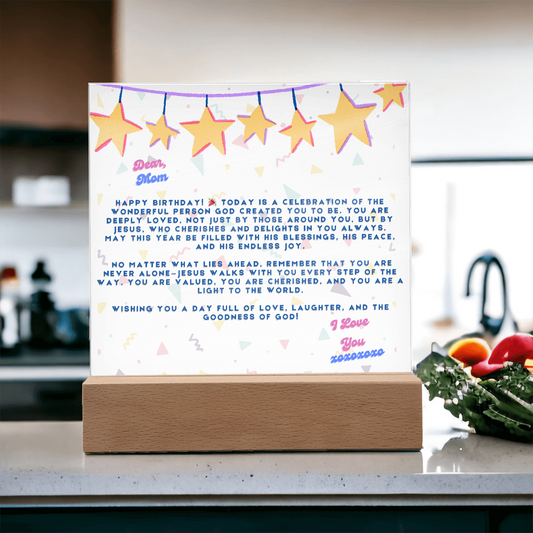 Dear,
Mom
HAPPY BIRTHDAY! 🎉 TODAY IS A CELEBRATION OF THE
WONDERFUL PERSON GOD CREATED YOU TO BE. YOU ARE
DEEPLY LOVED, NOT JUST BY THOSE AROUND YOU, BUT BY
JESUS, WHO CHERISHES AND DELIGHTS IN YOU ALWAYS.
MAY THIS YEAR BE FILLED WITH HIS BLESSINGS, HIS PEACE,
AND HIS ENDLESS JOY.
NO MATTER WHAT LIES AHEAD, REMEMBER THAT YOU ARE
NEVER ALONE—JESUS WALKS WITH YOU EVERY STEP OF THE
WAY. YOU ARE VALUED, YOU ARE CHERISHED, AND YOU ARE A
LIGHT TO THE WORLD.
WISHING YOU A DAY FULL OF LOVE, LAUGHTER, AND THE
GOODNESS OF GOD!
I Love
You
xoxoxoxo